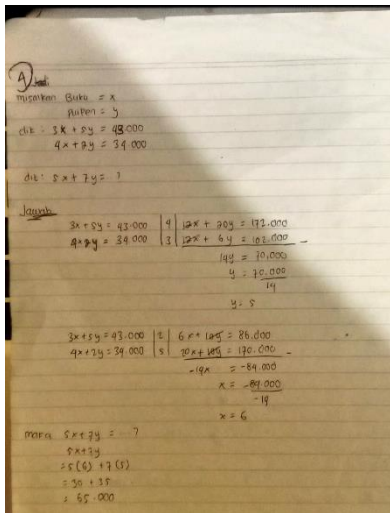 misalkan Buku = x
= y
dik : 3x + 5y = 43.000
4x + 2y = 34.000
dit : 5x + 7y = ?
Jawab
3x + 5y = 43.000 | 4 | 12x + 20y = 172.000
4x + 2y = 34.000 | 3 | 12x + 6y = 102.000 -
14y = 70.000
y = 70.000
14
y = 5
3x + 5y = 43.000 | 2 | 6x + = 86.000
4x + 2y = 34.000 | 5 | = 170.000 -
-14x = -84.000
x = -84.000
-14
x = 6
maka 5x + 7y = ... ?
5x + 7y
= 5(6) + 7(5)
= 30 + 35
= 65.000